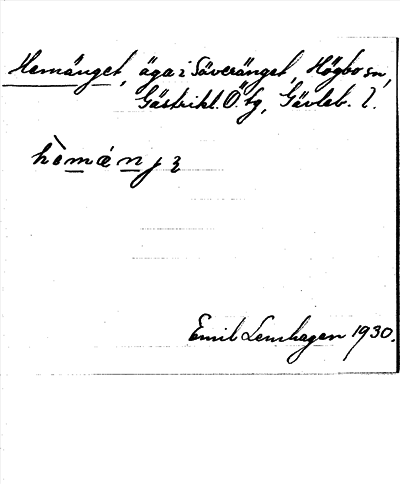 Hemänget, äga i Säveränget, Högbo sn,
Gästrikl. Ö. tg, Gävleb. l.
hèmǽnjȝ
Emil Lemhagen 1930.